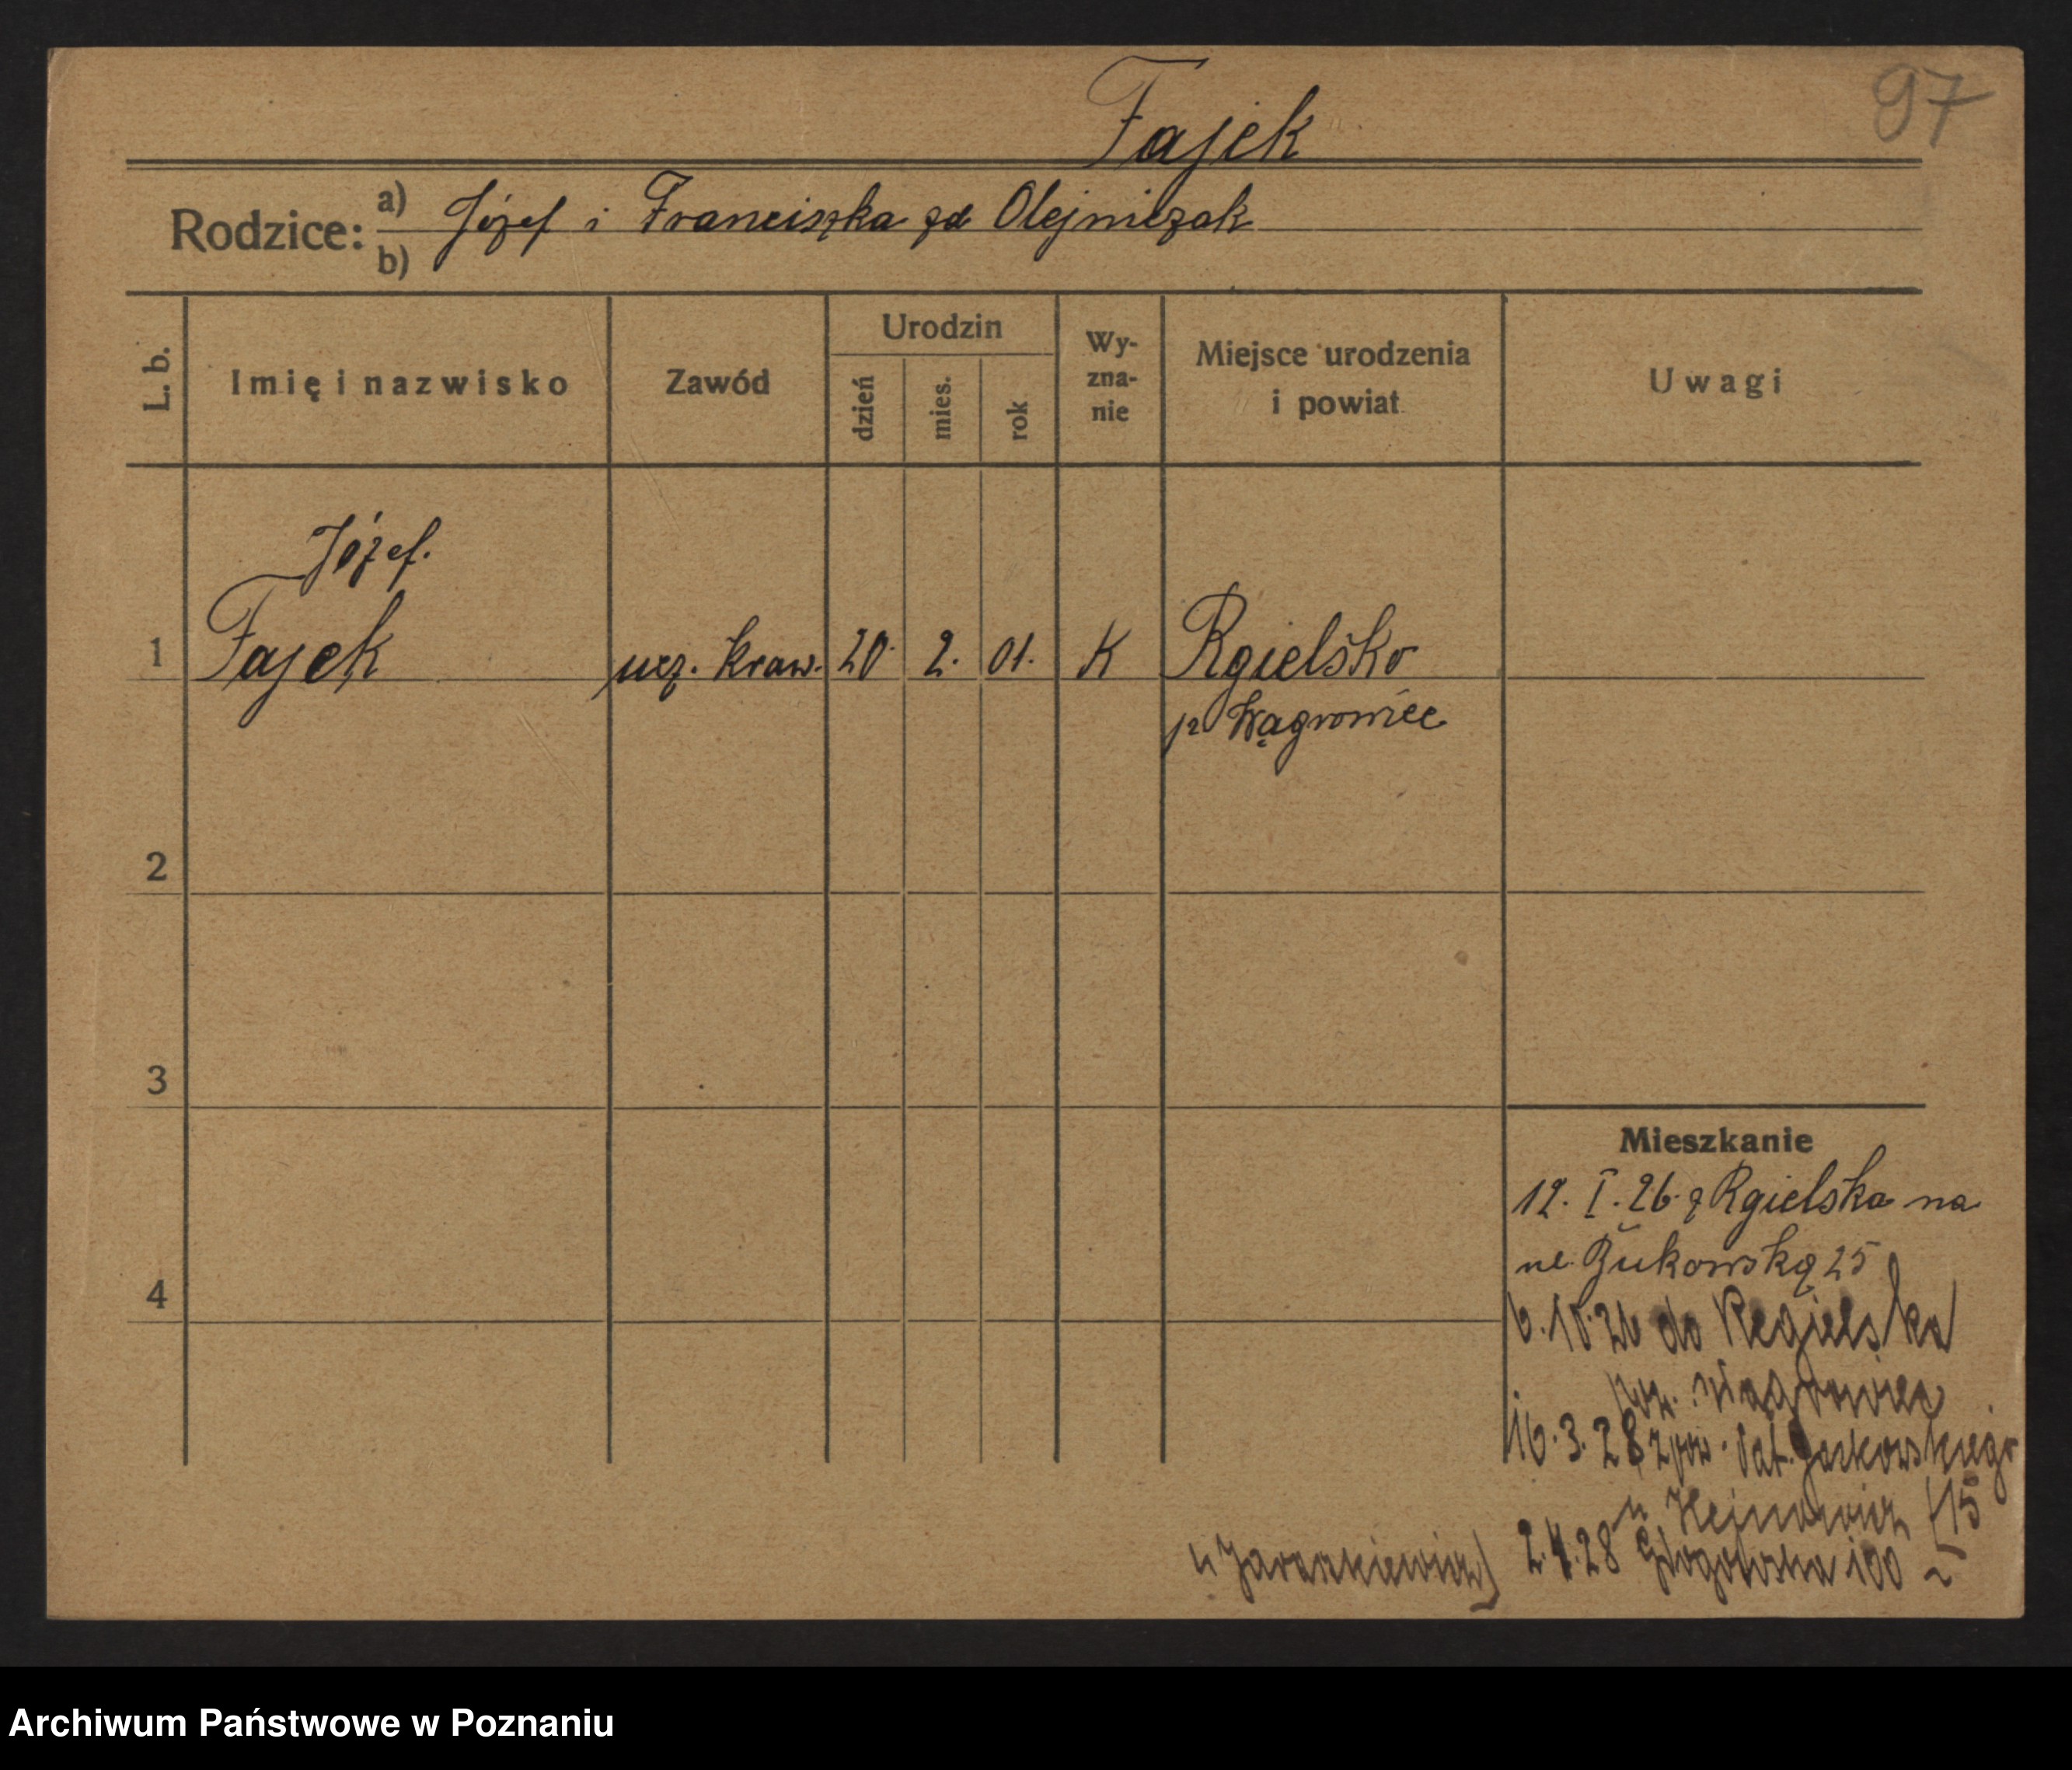 Fajek
97
Rodzice: a) Józef i Franciszka zd Olejniczak
b)
L. b. Imię i nazwisko Zawód Urodzin dzień mies. rok Wy-zna-nie Miejsce urodzenia i powiat Uwagi
Józef.
1 Fajek ucz. kraw. 20. 2. 01. K Rgielsko
p Wągrowiec
2
3
Mieszkanie
12. I. 26. z Rgielska na
ul. Bukowską 25
4
6.10.26 do Regielska
pow. Wągrowiec
16.3.28 zpow. Jackowskiego
u 15
2.4.28 Głogowska 100
Archiwum Państwowe w Poznaniu